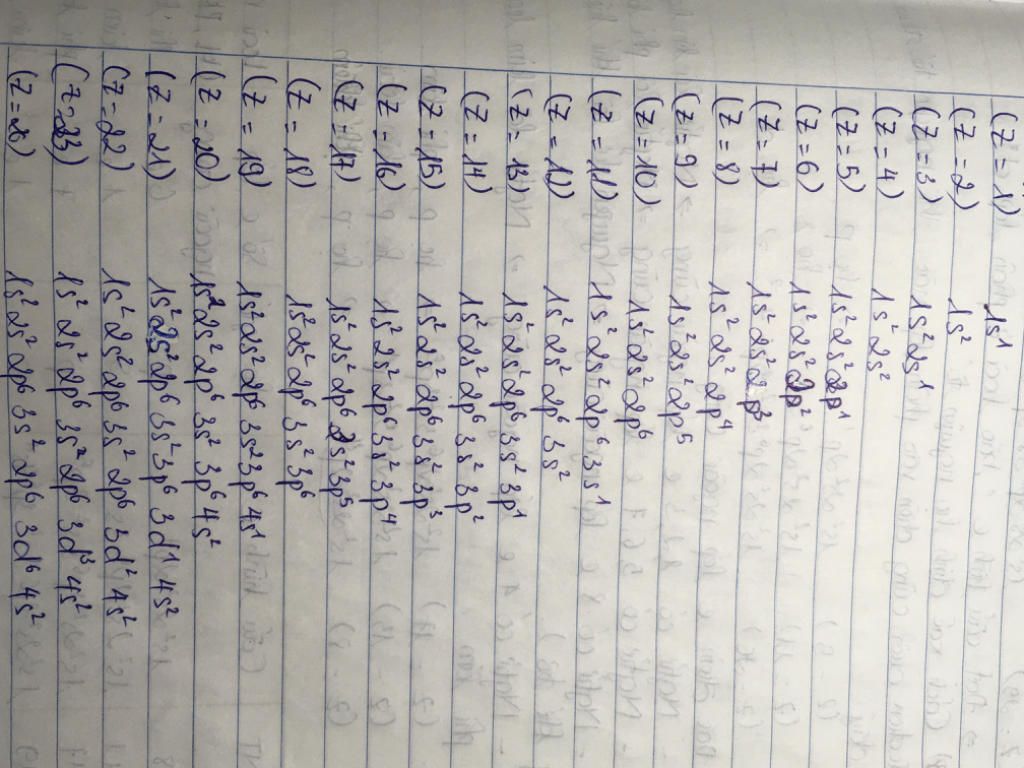 (Z = 1) 1s¹
(Z = 2) 1s²
(Z = 3) 1s² 2s¹
(Z = 4) 1s² 2s²
(Z = 5) 1s² 2s² 2p¹
(Z = 6) 1s² 2s² 2p²
(Z = 7) 1s² 2s² 2p³
(Z = 8) 1s² 2s² 2p⁴
(Z = 9) 1s² 2s² 2p⁵
(Z = 10) 1s² 2s² 2p⁶
(Z = 11) 1s² 2s² 2p⁶ 3s¹
(Z = 12) 1s² 2s² 2p⁶ 3s²
(Z = 13) 1s² 2s² 2p⁶ 3s² 3p¹
(Z = 14) 1s² 2s² 2p⁶ 3s² 3p²
(Z = 15) 1s² 2s² 2p⁶ 3s² 3p³
(Z = 16) 1s² 2s² 2p⁶ 3s² 3p⁴
(Z = 17) 1s² 2s² 2p⁶ 2s² 3p⁵
(Z = 18) 1s² 2s² 2p⁶ 3s² 3p⁶
(Z = 19) 1s² 2s² 2p⁶ 3s² 3p⁶ 4s¹
(Z = 20) 1s² 2s² 2p⁶ 3s² 3p⁶ 4s²
(Z = 21) 1s² 2s² 2p⁶ 3s² 3p⁶ 3d¹ 4s²
(Z = 22) 1s² 2s² 2p⁶ 3s² 2p⁶ 3d² 4s²
(Z = 23) 1s² 2s² 2p⁶ 3s² 2p⁶ 3d³ 4s²
1s² 2s² 2p⁶ 3s² 2p⁶ 3d⁶ 4s²